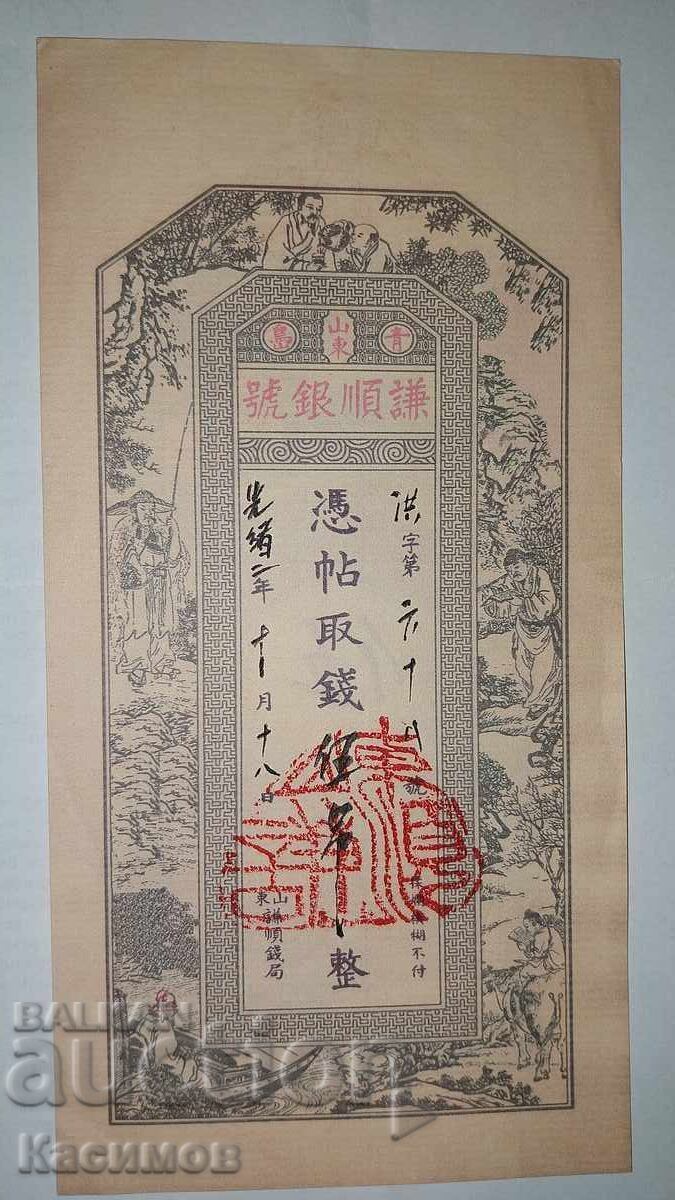 青 山東 島
謙順銀號
洪字第六十八號
憑帖取錢伍吊整
光緒二年十一月十八日
糊不付
山東謙順錢局
BALKAN
auction
Касимов